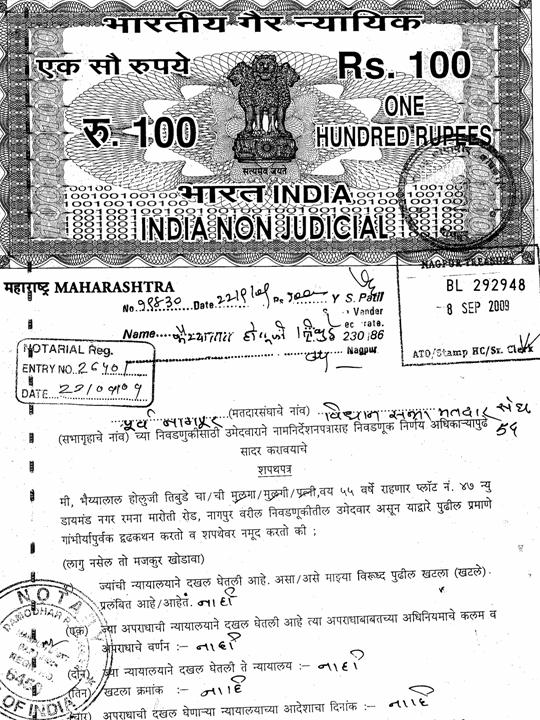 भारतीय गैर न्यायिक
एक सौ रुपये
Rs. 100
रु. 100
ONE
HUNDRED RUPEES
सत्यमेव जयते
भारत INDIA
INDIA NON JUDICIAL
महाराष्ट्र MAHARASHTRA
NAGPUR TREASURY
BL 292948
- 8 SEP 2009
ATO/Stamp HC/Sr. Clerk
No. Date Rs Y S. Patil
Vander
Name 230/86
Nagpur
NOTARIAL Reg.
ENTRY NO.
DATE
पूर्व नागपूर (मतदारसंघाचे नांव) विधान सभा मतदार संघ
(सभागृहाचे नांव) च्या निवडणुकीसाठी उमेदवाराने नामनिर्देशनपत्रासह निवडणूक निर्णय अधिकाऱ्यापुढे
सादर करावयाचे
शपथपत्र
मी, भैय्यालाल होलुजी तिबुडे चा/ची मुलगा/मुलगी/पत्नी,वय ५५ वर्षे राहणार प्लॉट नं. ४७ न्यु
डायमंड नगर रमना मारोती रोड, नागपुर वरील निवडणूकीतील उमेदवार असून याद्वारे पुढील प्रमाणे
गांभीर्यापुर्वक दृढकथन करतो व शपथेवर नमूद करतो की ;
(लागु नसेल तो मजकुर खोडावा)
ज्यांची न्यायालयाने दखल घेतली आहे. असा/असे माझ्या विरूध्द पुढील खटला (खटले).
प्रलंबित आहे/आहेत. नाही
(एक) ज्या अपराधाची न्यायालयाने दखल घेतली आहे त्या अपराधाबाबतच्या अधिनियमाचे कलम व
अपराधाचे वर्णन :- नाही
(दोन) ज्या न्यायालयाने दखल घेतली ते न्यायालय :- नाही
(तिन) खटला क्रमांक :- नाही
(चार) अपराधाची दखल घेणाऱ्या न्यायालयाच्या आदेशाचा दिनांक :- नाही
NOTARY